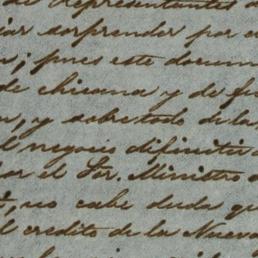 de Representantes d
jar sorprender por e
; pues este docum
de chicana y de fu
, y sobretodo de la
l negocio difinitiv
or el Sor. Ministro
, no cabe duda qu
l credito de la Nueva